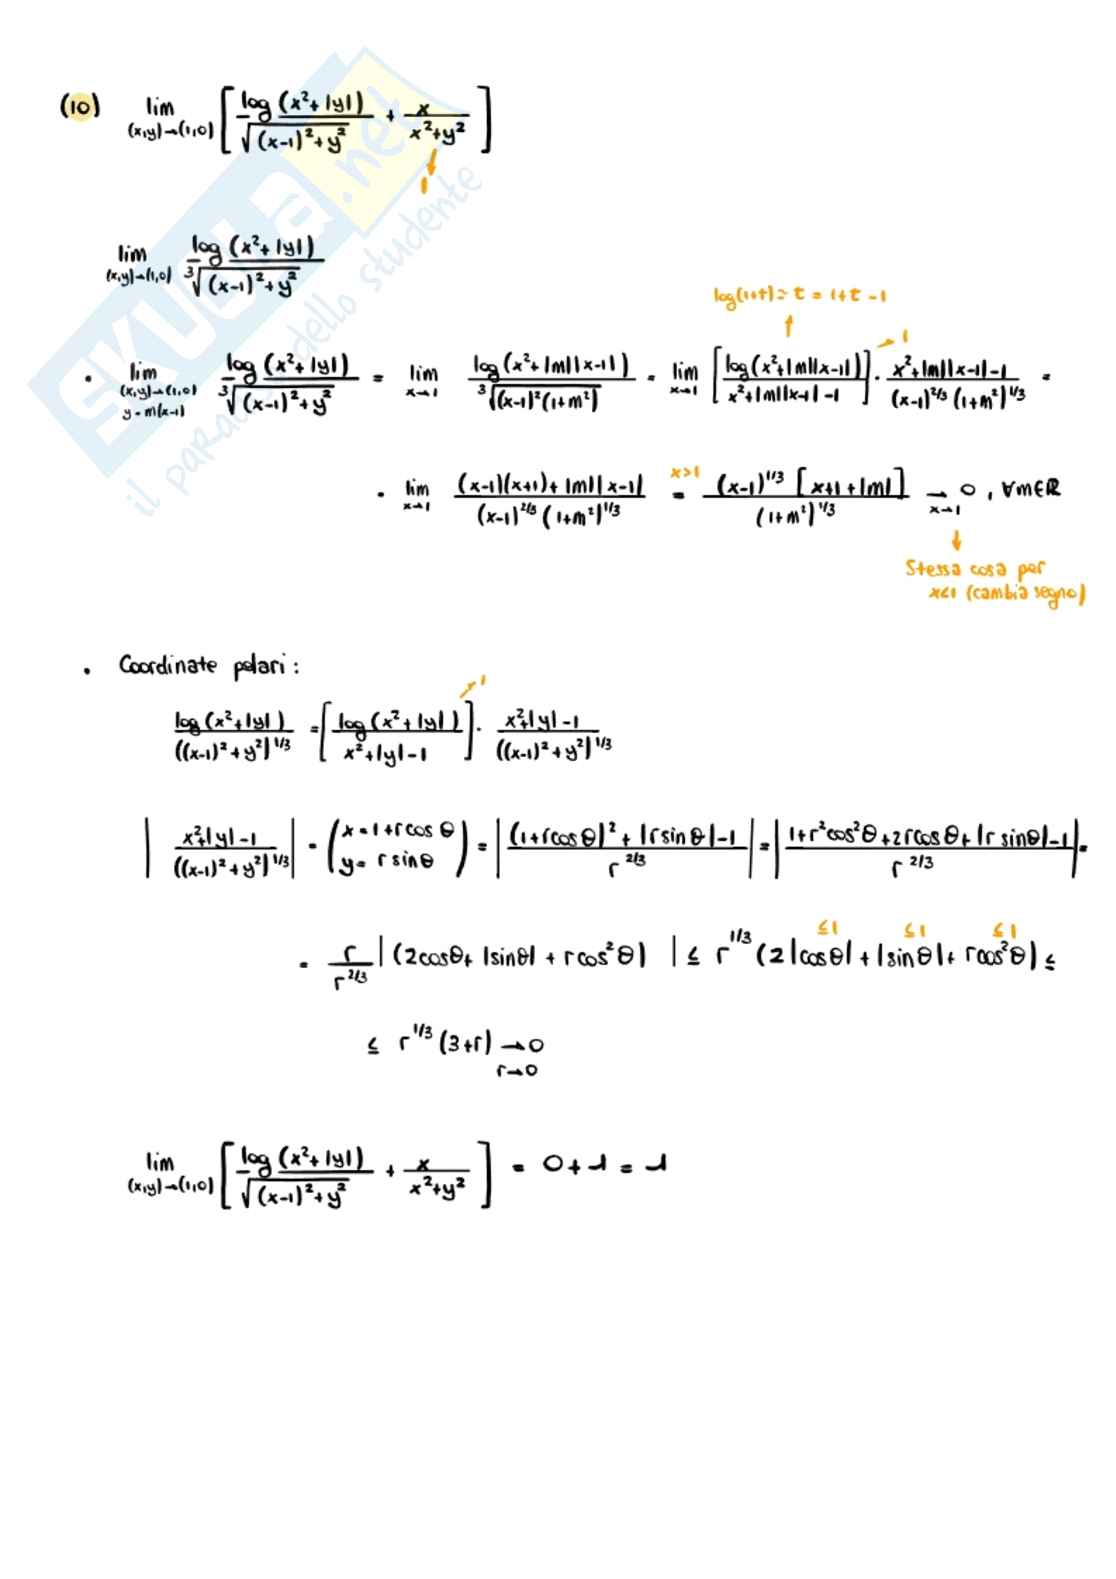 (10) lim (x,y)→(1,0) [ log(x²+|y|) / √((x-1)²+y²) + x / (x²+y²) ]
↓
1
lim (x,y)→(1,0) log(x²+|y|) / ³√((x-1)²+y²)
log(1+t) ≃ t = 1+t-1
• lim (x,y)→(1,0) y=m(x-1) log(x²+|y|) / ³√((x-1)²+y²) = lim x→1 log(x²+|m||x-1|) / ³√((x-1)²(1+m²)) = lim x→1 [ log(x²+|m||x-1|) / x²+|m||x-1|-1 ]→1 · x²+|m||x-1|-1 / (x-1)^2/3 (1+m²)^1/3 =
= lim x→1 (x-1)(x+1)+|m||x-1| / (x-1)^2/3 (1+m²)^1/3 = x>1 (x-1)^1/3 [x+1+|m|] / (1+m²)^1/3 → x→1 0, ∀m∈ℝ
↓
Stessa cosa per
x<1 (cambia segno)
• Coordinate polari:
log(x²+|y|) / ((x-1)²+y²)^1/3 = [ log(x²+|y|) / x²+|y|-1 ]→1 · x²+|y|-1 / ((x-1)²+y²)^1/3
| x²+|y|-1 / ((x-1)²+y²)^1/3 | = ( x=1+rcosθ y=rsinθ ) = | (1+rcosθ)²+|rsinθ|-1 / r^2/3 | = | 1+r²cos²θ+2rcosθ+|rsinθ|-1 / r^2/3 | =
= r / r^2/3 |(2cosθ+|sinθ|+rcos²θ)| ≤ r^1/3 (2|cosθ| ≤1 +|sinθ| ≤1 + rcos²θ ≤1) ≤
≤ r^1/3 (3+r) → r→0 0
lim (x,y)→(1,0) [ log(x²+|y|) / √((x-1)²+y²) + x / x²+y² ] = 0+1=1
SKUOLA.net
il paradiso dello studente